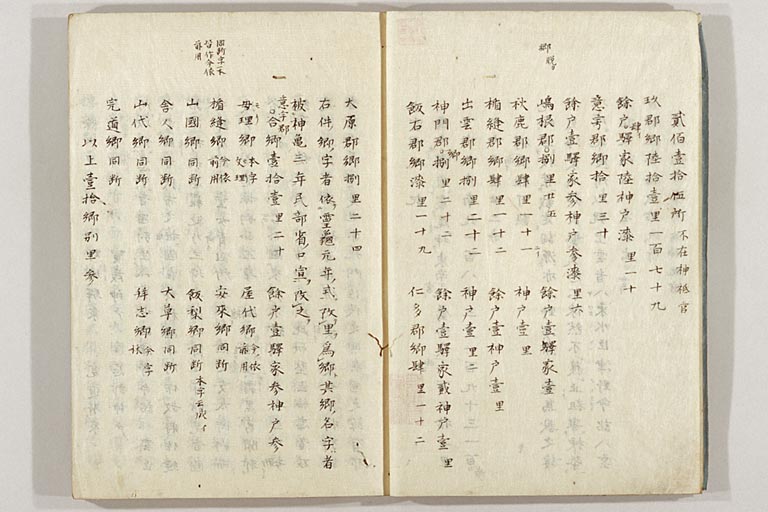 貳佰壹拾伍所 不在神祇官
玖郡郷陸拾壹 里一百七十九
餘戸肆驛家陸神戸漆 里一十
意宇郡郷拾 里三十
餘戸壹驛家参神戸参 里六
嶋根郡郷捌 里廿五 餘戸壹驛家壹
郷脱カ
秋鹿郡郷肆 里一十二 神戸壹 里
楯縫郡郷肆 里一十二 餘戸壹神戸壹 里
出雲郡郷捌 里二十二 神戸壹 里二
神門郡郷捌 里二十二 餘戸壹驛家貳神戸壹 里
飯石郡郷漆 里一十九 仁多郡郷肆 里一十二
大原郡郷捌 里二十四
右件郷字者依靈龜元年式改里爲郷其郷名字者
被神亀三年民部省口宣改之
意宇郡
合郷壹拾壹 里三十 餘戸壹驛家参神戸参
母理郷 本字文理 屋代郷 今依前用
楯縫郷 今依前用 安來郷 同所
山國郷 同所 飯梨郷 同所 本字云成
舎人郷 同所 大草郷 同所
山代郷 同所 拜志郷 今字林
宍道郷 同所
以上壹拾郷別里参